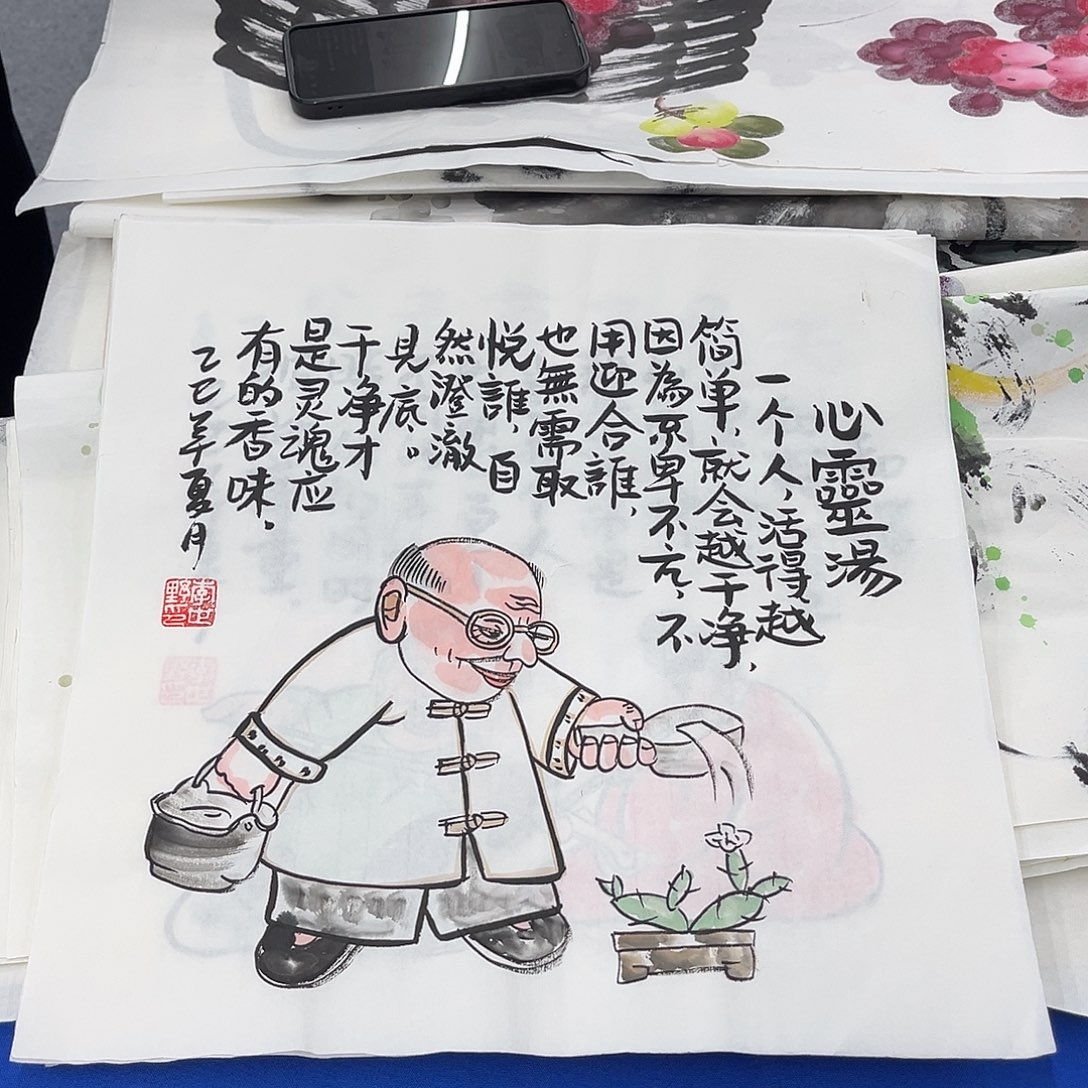 心靈湯
一个人,活得越
简单,就会越干净,
因為不卑不亢,不
用迎合誰,
也無需取
悦誰,自
然澄澈
見底。
干净才
是灵魂应
有的香味。
乙巳年夏月